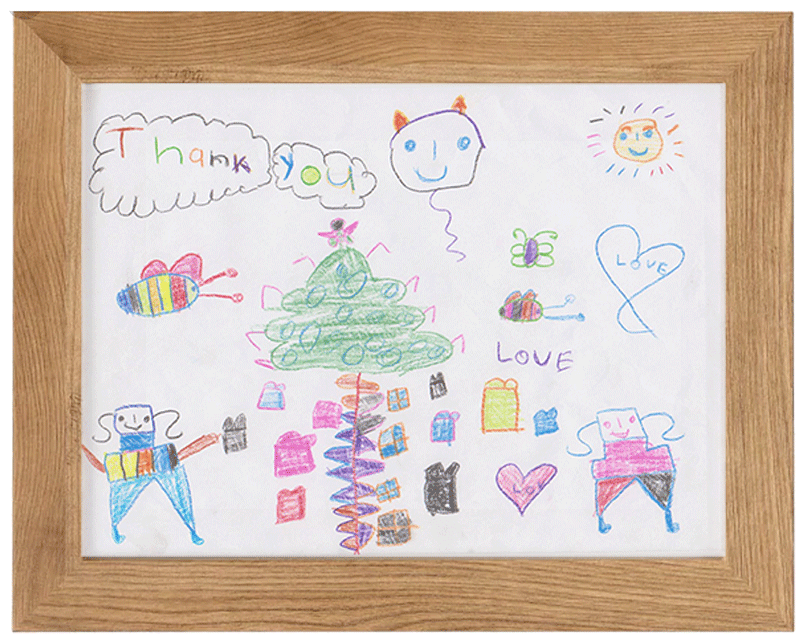 Thank you
LOVE
LOVE